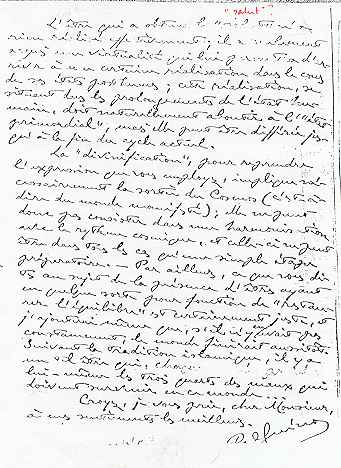 "salut"
L'être qui a obtenu le "salut" n'a
rien réalisé effectivement; il a seulement
acquis une virtualité qui lui permettra d'ar-
river à une certaine réalisation dans le cours
de ses états posthumes; cette réalisation, se
situant dans les prolongements de l'état hu-
main, doit naturellement aboutir à l'"état
primordial", mais elle peut être différée jus-
qu'à la fin du cycle actuel.
La "divinification", pour reprendre
l'expression que vous employez, implique né-
cessairement la sortie du Cosmos (c'est-à-
dire du monde manifesté); elle ne peut
donc pas consister dans une harmonisation
avec le rythme cosmique, et celle-ci ne peut
être dans tous les cas qu'une simple étape
préparatoire. Par ailleurs, ce que vous dit-
es au sujet de la présence d'êtres ayant
en quelque sorte pour fonction de "restau-
rer l'équilibre" est certainement juste, et
j'ajouterai même que, s'il n'y avait pas
constamment, le monde finirait aussitôt.
Suivant la tradition islamique, il y a
un tel être qui, chaque
lui-même les trois quarts des maux qui
doivent survenir en ce monde...
Croyez, je vous prie, cher Monsieur,
à mes sentiments les meilleurs.
R. Guénon